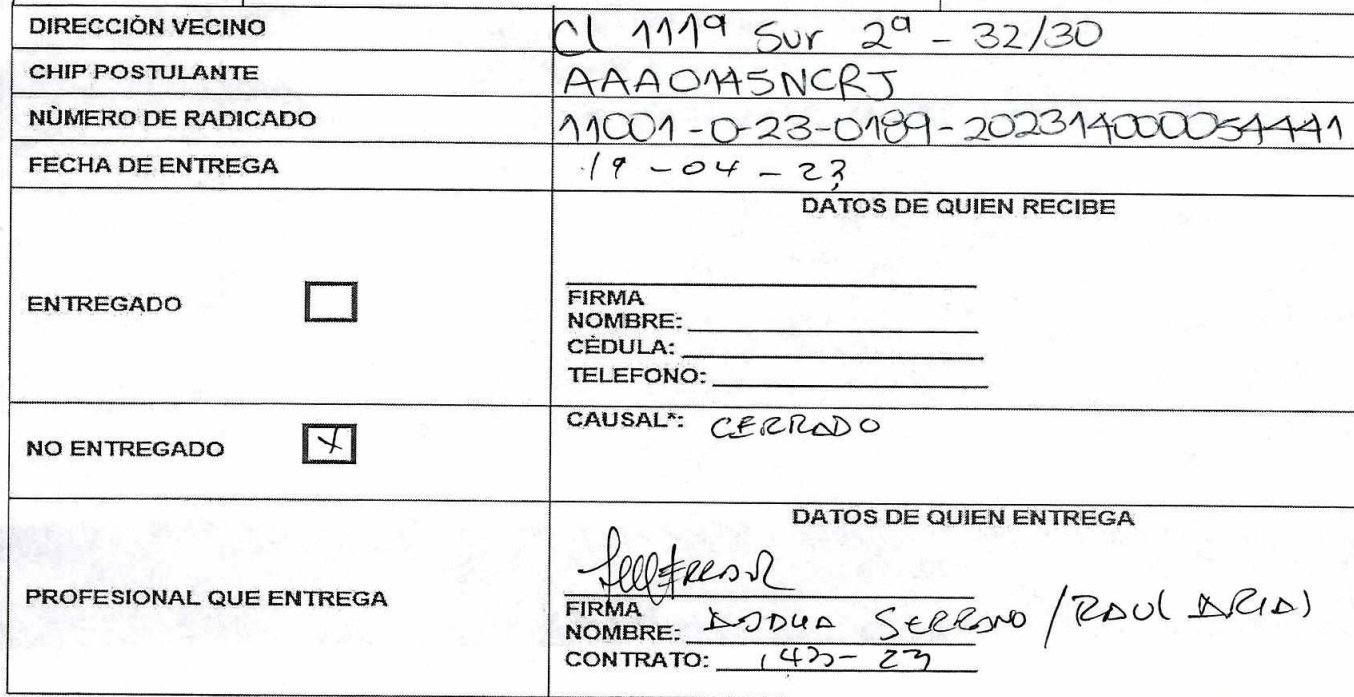 DIRECCIÒN VECINO
Cl 111ª Sur 2ª - 32/30
CHIP POSTULANTE
AAA0145NCRJ
NÙMERO DE RADICADO
11001-0-23-0189-202314000054441
FECHA DE ENTREGA
19-04-23
DATOS DE QUIEN RECIBE
ENTREGADO
FIRMA
NOMBRE:
CÈDULA:
TELEFONO:
NO ENTREGADO X
CAUSAL*: CERRADO
DATOS DE QUIEN ENTREGA
PROFESIONAL QUE ENTREGA
FIRMA
NOMBRE: SERRANO / RAUL ARIAS
CONTRATO: